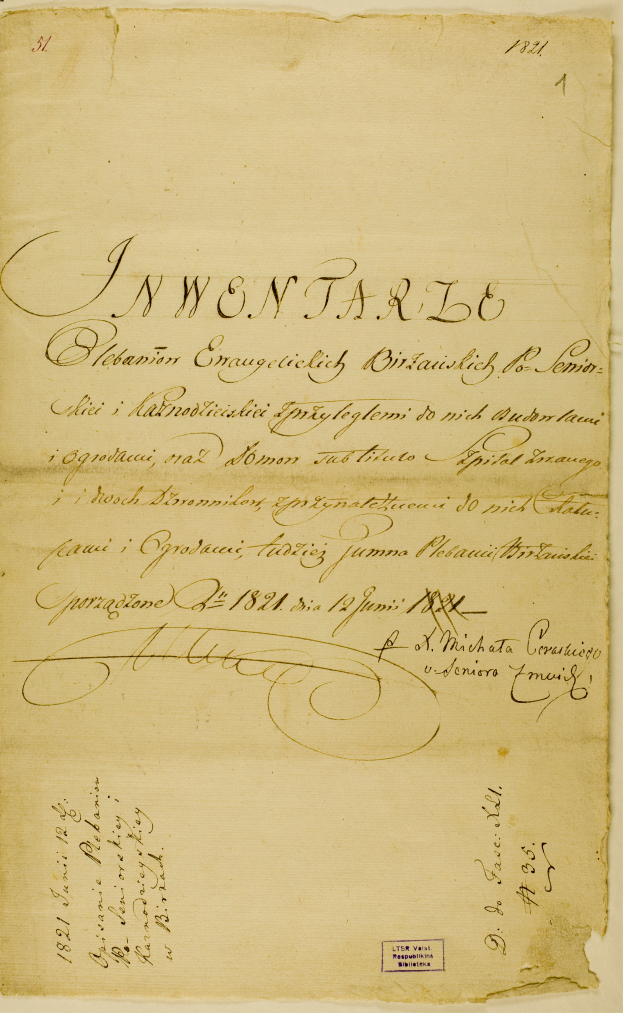 51.
1821.
1
INWENTARZE
Plebaniów Ewangelickich Birżańskich, Po-Senior=
skiei i Kaznodzieiskiei zprzyległemi do nich Budowlami
i Ogrodami, oraz Domon tub tituło Szpital zwanego,
i i dwoch Dzwonnikow, zprzynależnemi do nich Chału=
pami i Ogrodami, tudzież Gumna Plebanii Birżańskiei
sporządzone Rku 1821. dnia 12 Junii 1821
p X. Michała Ceraskiego
v. Seniora Zmuidz,
1821 Junii 12 D.
Opisanie Plebaniow
Po-Seniorskiey i
Kaznodzieyskiey
w Birżach.
D: do Fasc: XLI.
N 35.
LTSR Valst.
Respublikinė
Biblioteka